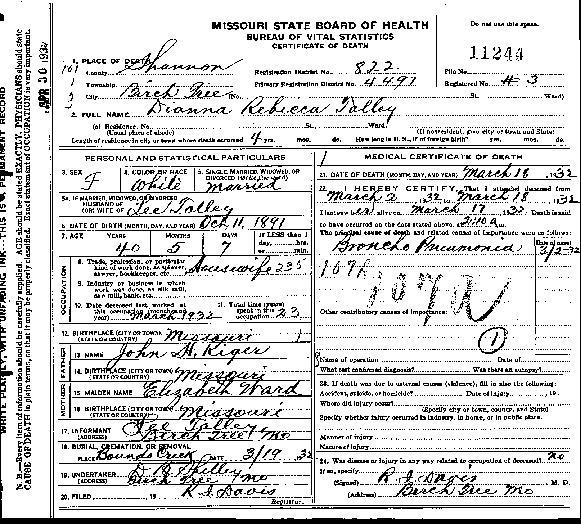 MISSOURI STATE BOARD OF HEALTH
BUREAU OF VITAL STATISTICS
CERTIFICATE OF DEATH
Do not use this space.
11244
APR 30 1932
1. PLACE OF DEATH
County Shannon
Registration District No. 822
File No.
Township
Primary Registration District No. 4491
Registered No. # 3
City Birch Tree No. St. Ward)
2. FULL NAME Dianna Rebecca Talley
(a) Residence, No. St. Ward.
(Usual place of abode) (If nonresident, give city or town and State)
Length of residence in city or town where death occurred 4 yrs. mos. ds. How long in U. S., if of foreign birth? yrs. mos. ds.
PERSONAL AND STATISTICAL PARTICULARS
3. SEX F
4. COLOR OR RACE White
5. SINGLE, MARRIED, WIDOWED, OR DIVORCED (write the word) married
5A. IF MARRIED, WIDOWED, OR DIVORCED
HUSBAND OF
(OR) WIFE OF Lee Talley
6. DATE OF BIRTH (MONTH, DAY, AND YEAR) Oct 11, 1891
7. AGE YEARS MONTHS DAYS If LESS than 1
40 5 7 day, hrs.
or min.
OCCUPATION
8. Trade, profession, or particular
kind of work done, as spinner,
sawyer, bookkeeper, etc. Housewife 235
9. Industry or business in which
work was done, as silk mill,
saw mill, bank, etc.
10. Date deceased last worked at
this occupation (month and
year) March 1932
11. Total time (years)
spent in this
occupation 23
12. BIRTHPLACE (CITY OR TOWN) Missouri
(STATE OR COUNTRY)
FATHER
13. NAME John H. Kiger
14. BIRTHPLACE (CITY OR TOWN) Missouri
(STATE OR COUNTRY)
MOTHER
15. MAIDEN NAME Elizabeth Ward
16. BIRTHPLACE (CITY OR TOWN) Missouri
(STATE OR COUNTRY)
17. INFORMANT Lee Talley
(ADDRESS) Birch Tree Mo
18. BURIAL, CREMATION, OR REMOVAL
PLACE Bounds Creek DATE 3/19 32
19. UNDERTAKER
(ADDRESS) Birch Tree Mo
20. FILED 19 R. I. Davis
Registrar.
MEDICAL CERTIFICATE OF DEATH
21. DATE OF DEATH (MONTH, DAY, AND YEAR) March 18 1932
22. I HEREBY CERTIFY, That I attended deceased from
March 2 1932 to March 18 1932
I last saw her alive on March 17 1932 Death is said
to have occurred on the date stated above, at 2:40 A m.
The principal cause of death and related causes of importance were as follows:
Date of onset
Broncho Pneumonia 3/2-32
107a
107a
Other contributory causes of importance:
1
Name of operation Date of
What test confirmed diagnosis? Was there an autopsy?
23. If death was due to external causes (violence), fill in also the following:
Accident, suicide or homicide? Date of injury 19
Where did injury occur?
(Specify city or town, county, and State)
Specify whether injury occurred in industry, in home, or in public place.
Manner of injury
Nature of injury
24. Was disease or injury in any way related to occupation of deceased? no
If so, specify
(Signed) R. I. Davis M. D.
(Address) Birch Tree Mo